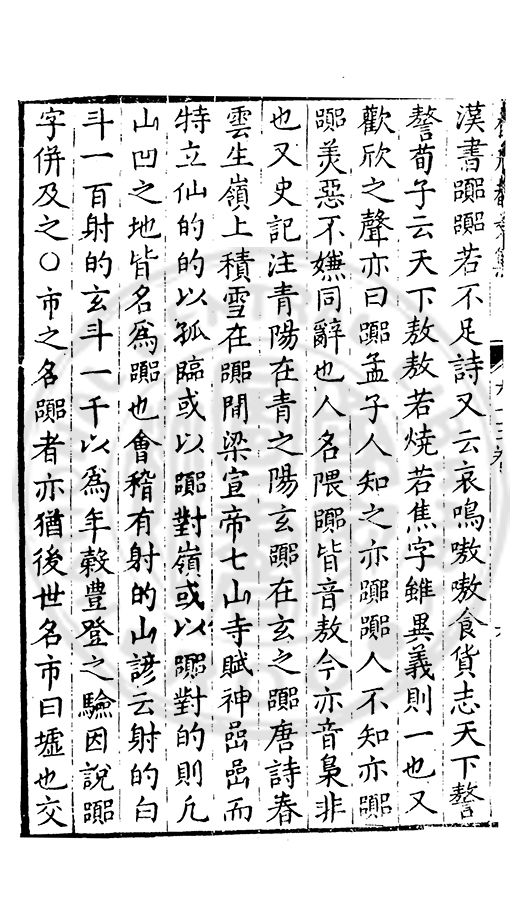 漢書囂囂若不足詩又云哀鳴嗷嗷食貨志天下謷
謷荀子云天下敖敖若燒若焦字雖異義則一也又
歡欣之聲亦曰囂孟子人知之亦囂囂人不知亦囂
囂羙惡不嫌同辭也人名隈囂皆音敖今亦音梟非
也又史記注青陽在青之陽玄囂在玄之囂唐詩春
雲生嶺上積雪在囂間梁宣帝七山寺賦神嵒嵒而
特立仙的的以孤臨或以囂對嶺或以囂對的則凡
山凹之地皆名爲囂也會稽有射的山諺云射的白
斗一百射的玄斗一千以爲年榖豊登之驗因說囂
字併及之○市之名囂者亦猶後世名市曰墟也交